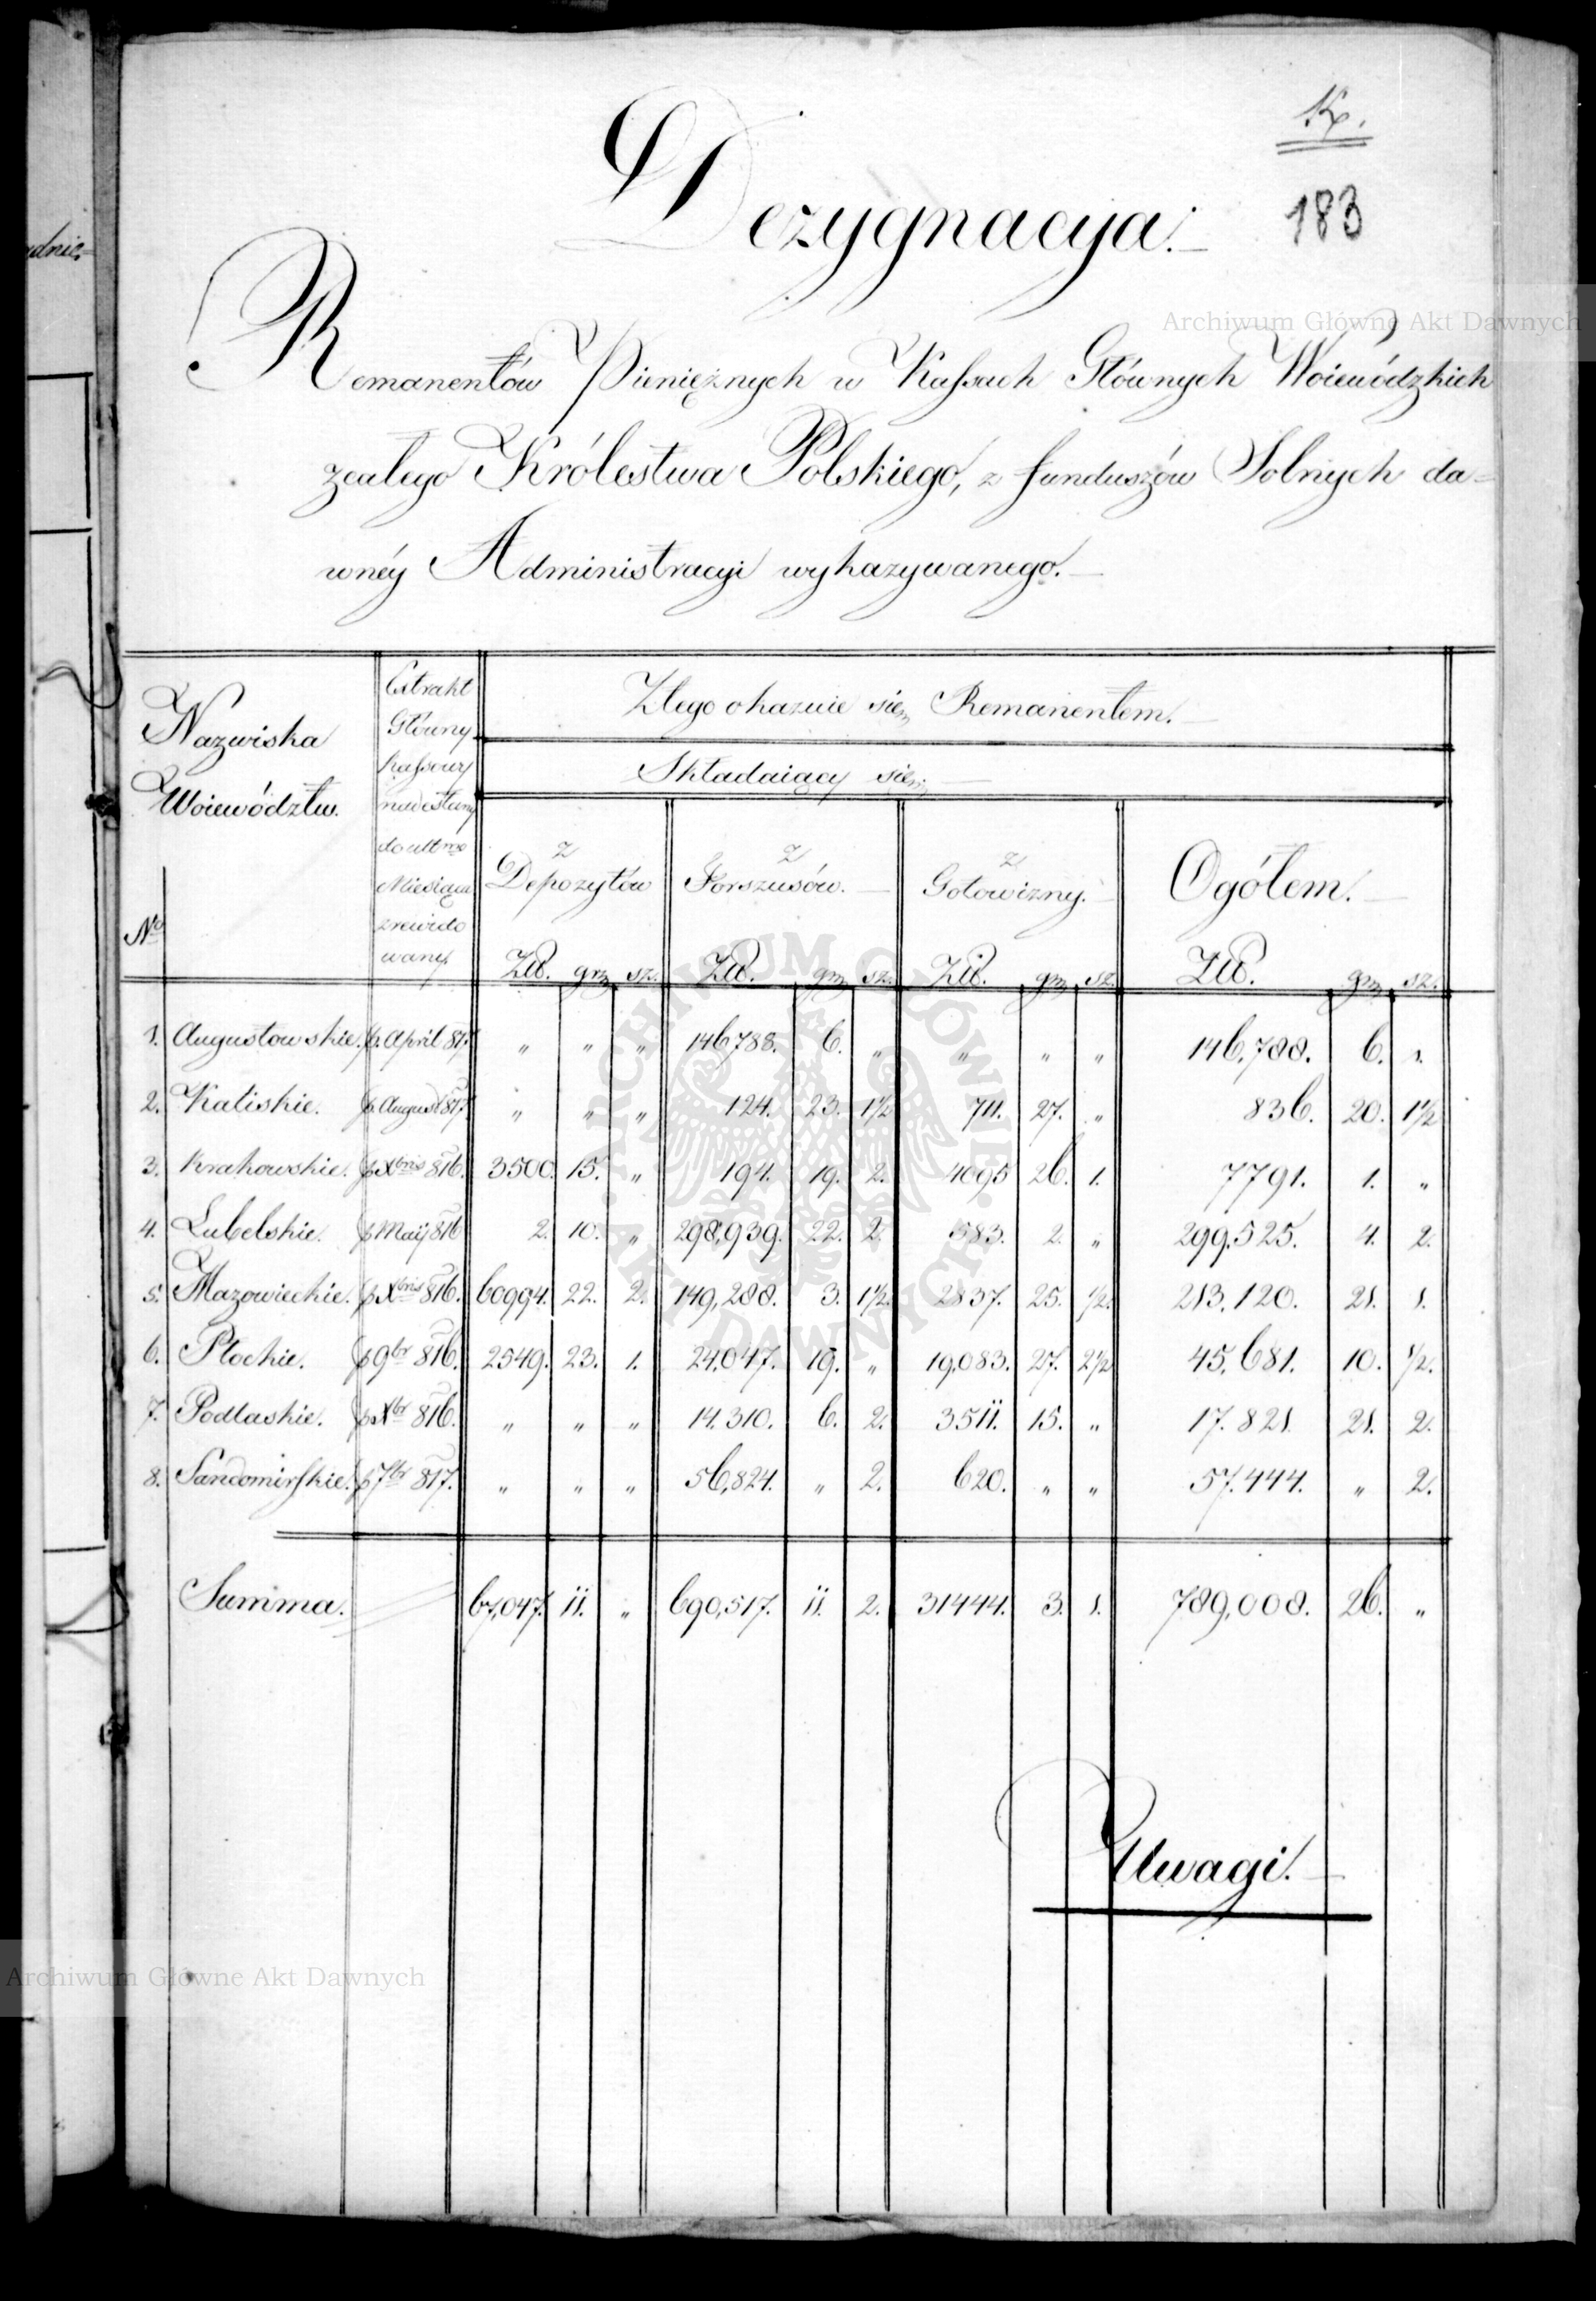 K.
183
Dezygnacyja.
Remanentów Pieniężnych w Kassach Głównych Woiewódzkich
zcałego Królestwa Polskiego, z funduszów Solnych da=
wnéy Administracyi wykazywanego.
Nazwiska Woiewództw.
No
Extrakt
Główny
Kassowy
nadesłany
do ult mo
Miesiąca
zrewido
wany.
Ztego okazuie się Remanentem.
Składaiący się
z Depozytów
z Forszusów.
z Gotowizny.
Ogółem.
Złł. gr. sz. Złł. gr. sz. Złł. gr. sz. Złł. gr. sz.
1. Augustowskie. p. April 817. " " " 146788. 6. " " " " 146,788. 6. 1.
2. Kaliskie. p. August 817. " " " 124. 23. 1½ 711. 27. " 836. 20. 1½
3. Krakowskie. p Xbris 816. 3500. 15. " 194. 19. 2. 4095 26. 1. 7791. 1. "
4. Lubelskie. p Maij 816 2. 10. " 298,939. 22. 2. 583. 2. " 299,525. 4. 2.
5. Mazowieckie. p Xbris 816. 60994. 22. 2. 149,288. 3. 1½. 2837. 25. ½. 213,120. 21. 1.
6. Płockie. p 9br 816. 2549. 23. 1. 24,047. 19. " 19,083. 27. 2½ 45,681. 10. ½.
7. Podlaskie. p Xbr 816. " " " 14.310. 6. 2. 3511. 15. " 17.821. 21. 2.
8. Sandomirskie. p 7br 817. " " " 56,824. " 2. 620. " " 57.444. " 2.
Summa. 67,047. 11. " 690,517. 11. 2. 31444. 3. 1. 789,008. 26. "
Uwagi.
Archiwum Główne Akt Dawnych
Archiwum Główne Akt Dawnych
ARCHIWUM GŁÓWNE AKT DAWNYCH